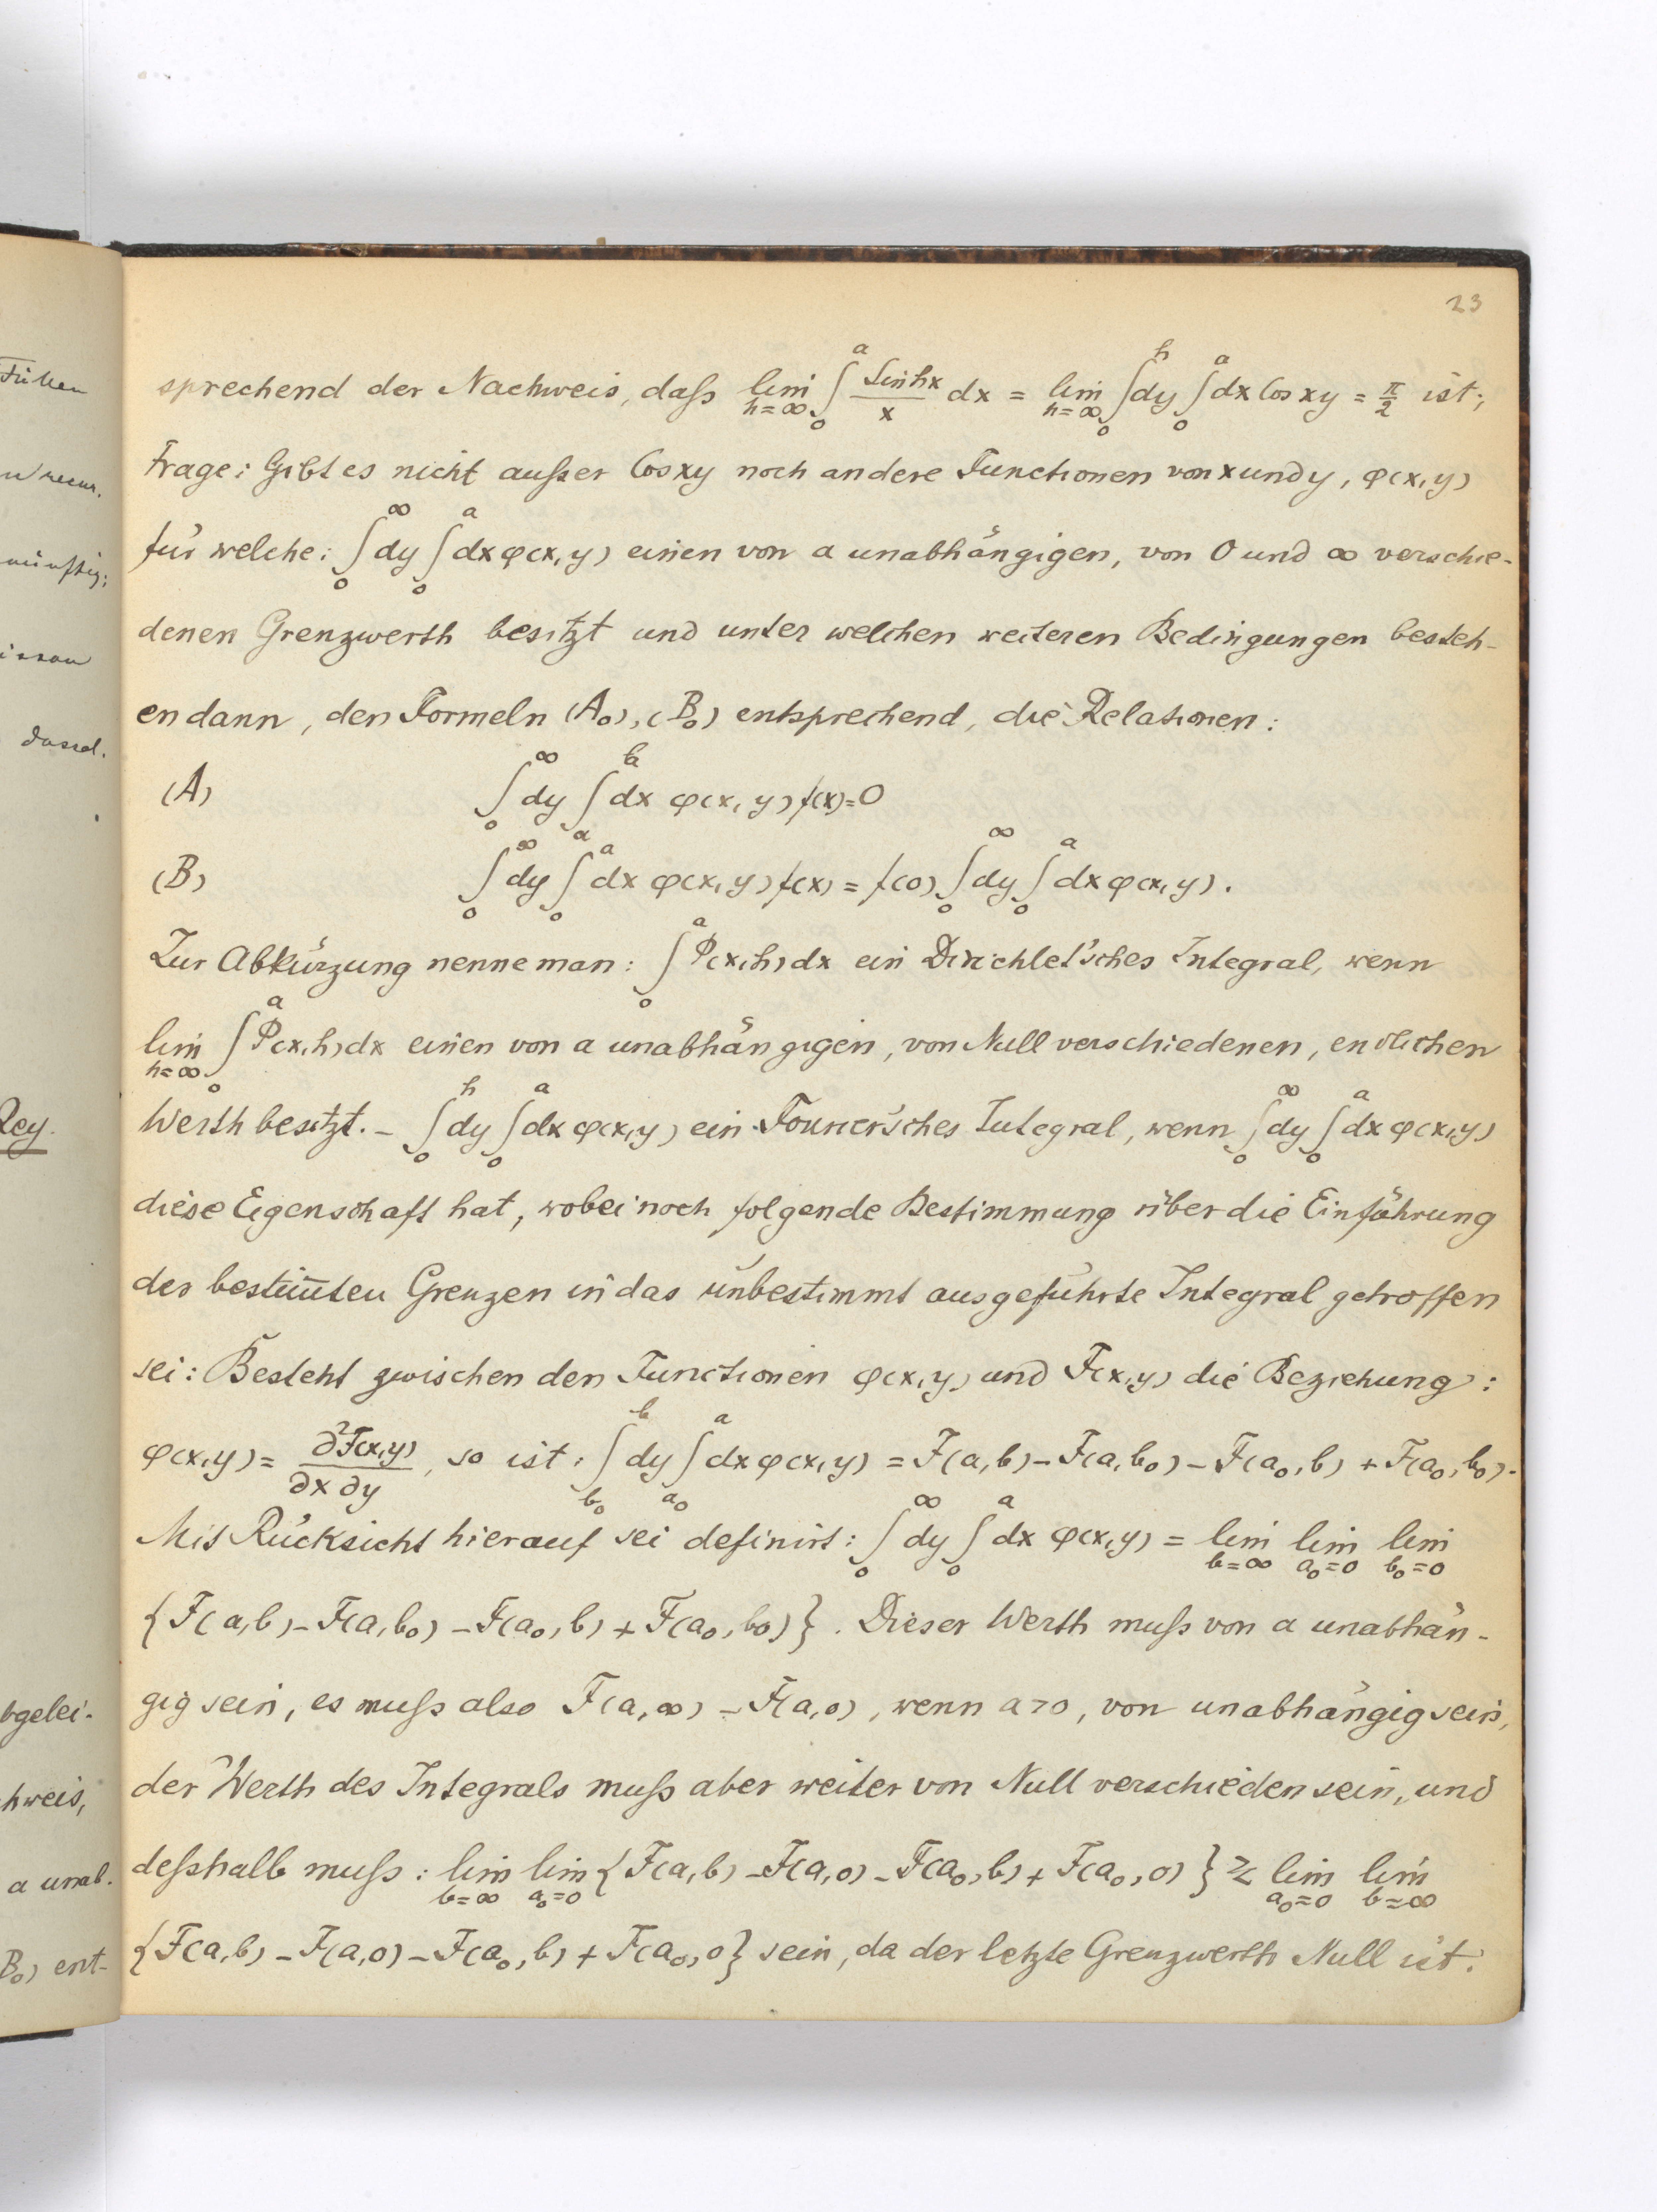 23
sprechend der Nachweis, daß $\lim_{h=\infty} \int_0^a \frac{\sin hx}{x} dx = \lim_{h=\infty} \int_0^h dy \int_0^a dx \cos xy = \frac{\pi}{2}$ ist;
Frage: Gibt es nicht außer Cos xy noch andere Functionen von x und y, φ(x,y)
für welche: $\int_0^\infty dy \int_0^a dx\, φ(x,y)$ einen von a unabhängigen, von 0 und ∞ verschie-
denen Grenzwerth besitzt und unter welchen weiteren Bedingungen besteh-
en dann, den Formeln (A₀), (B₀) entsprechend, die Relationen:
(A) $\int_0^\infty dy \int_a^b dx\, φ(x,y) f(x) = 0$
(B) $\int_0^\infty dy \int_0^a dx\, φ(x,y) f(x) = f(0) \int_0^\infty dy \int_0^a dx\, φ(x,y)$.
Zur Abkürzung nenne man: $\int_0^a Φ(x,h) dx$ ein Dirichlet'sches Integral, wenn
$\lim_{h=\infty} \int_0^a Φ(x,h) dx$ einen von a unabhängigen, von Null verschiedenen, endlichen
Werth besitzt. – $\int_0^h dy \int_0^a dx\, φ(x,y)$ ein Fourier'sches Integral, wenn $\int_0^\infty dy \int_0^a dx\, φ(x,y)$
diese Eigenschaft hat, wobei noch folgende Bestimmung über die Einführung
der bestim̅ten Grenzen in das unbestimmt ausgeführte Integral getroffen
sei: Besteht zwischen den Functionen φ(x,y) und F(x,y) die Beziehung:
$φ(x,y) = \frac{\partial^2 F(x,y)}{\partial x \partial y}$, so ist: $\int_{b_0}^b dy \int_{a_0}^a dx\, φ(x,y) = F(a,b) - F(a,b_0) - F(a_0,b) + F(a_0,b_0)$.
Mit Rücksicht hierauf sei definirt: $\int_0^\infty dy \int_0^a dx\, φ(x,y) = \lim_{b=\infty} \lim_{a_0=0} \lim_{b_0=0}$
$\{F(a,b) - F(a,b_0) - F(a_0,b) + F(a_0,b_0)\}$. Dieser Werth muß von a unabhän-
gig sein, es muß also F(a,∞) – F(a,0), wenn a>0, von unabhängig sein,
der Werth des Integrals muß aber weiter von Null verschieden sein, und
deßhalb muß: $\lim_{b=\infty} \lim_{a_0=0} \{F(a,b) - F(a,0) - F(a_0,b) + F(a_0,0)\} ≷ \lim_{a_0=0} \lim_{b=\infty}$
$\{F(a,b) - F(a,0) - F(a_0,b) + F(a_0,0\}$ sein, da der letzte Grenzwerth Null ist.